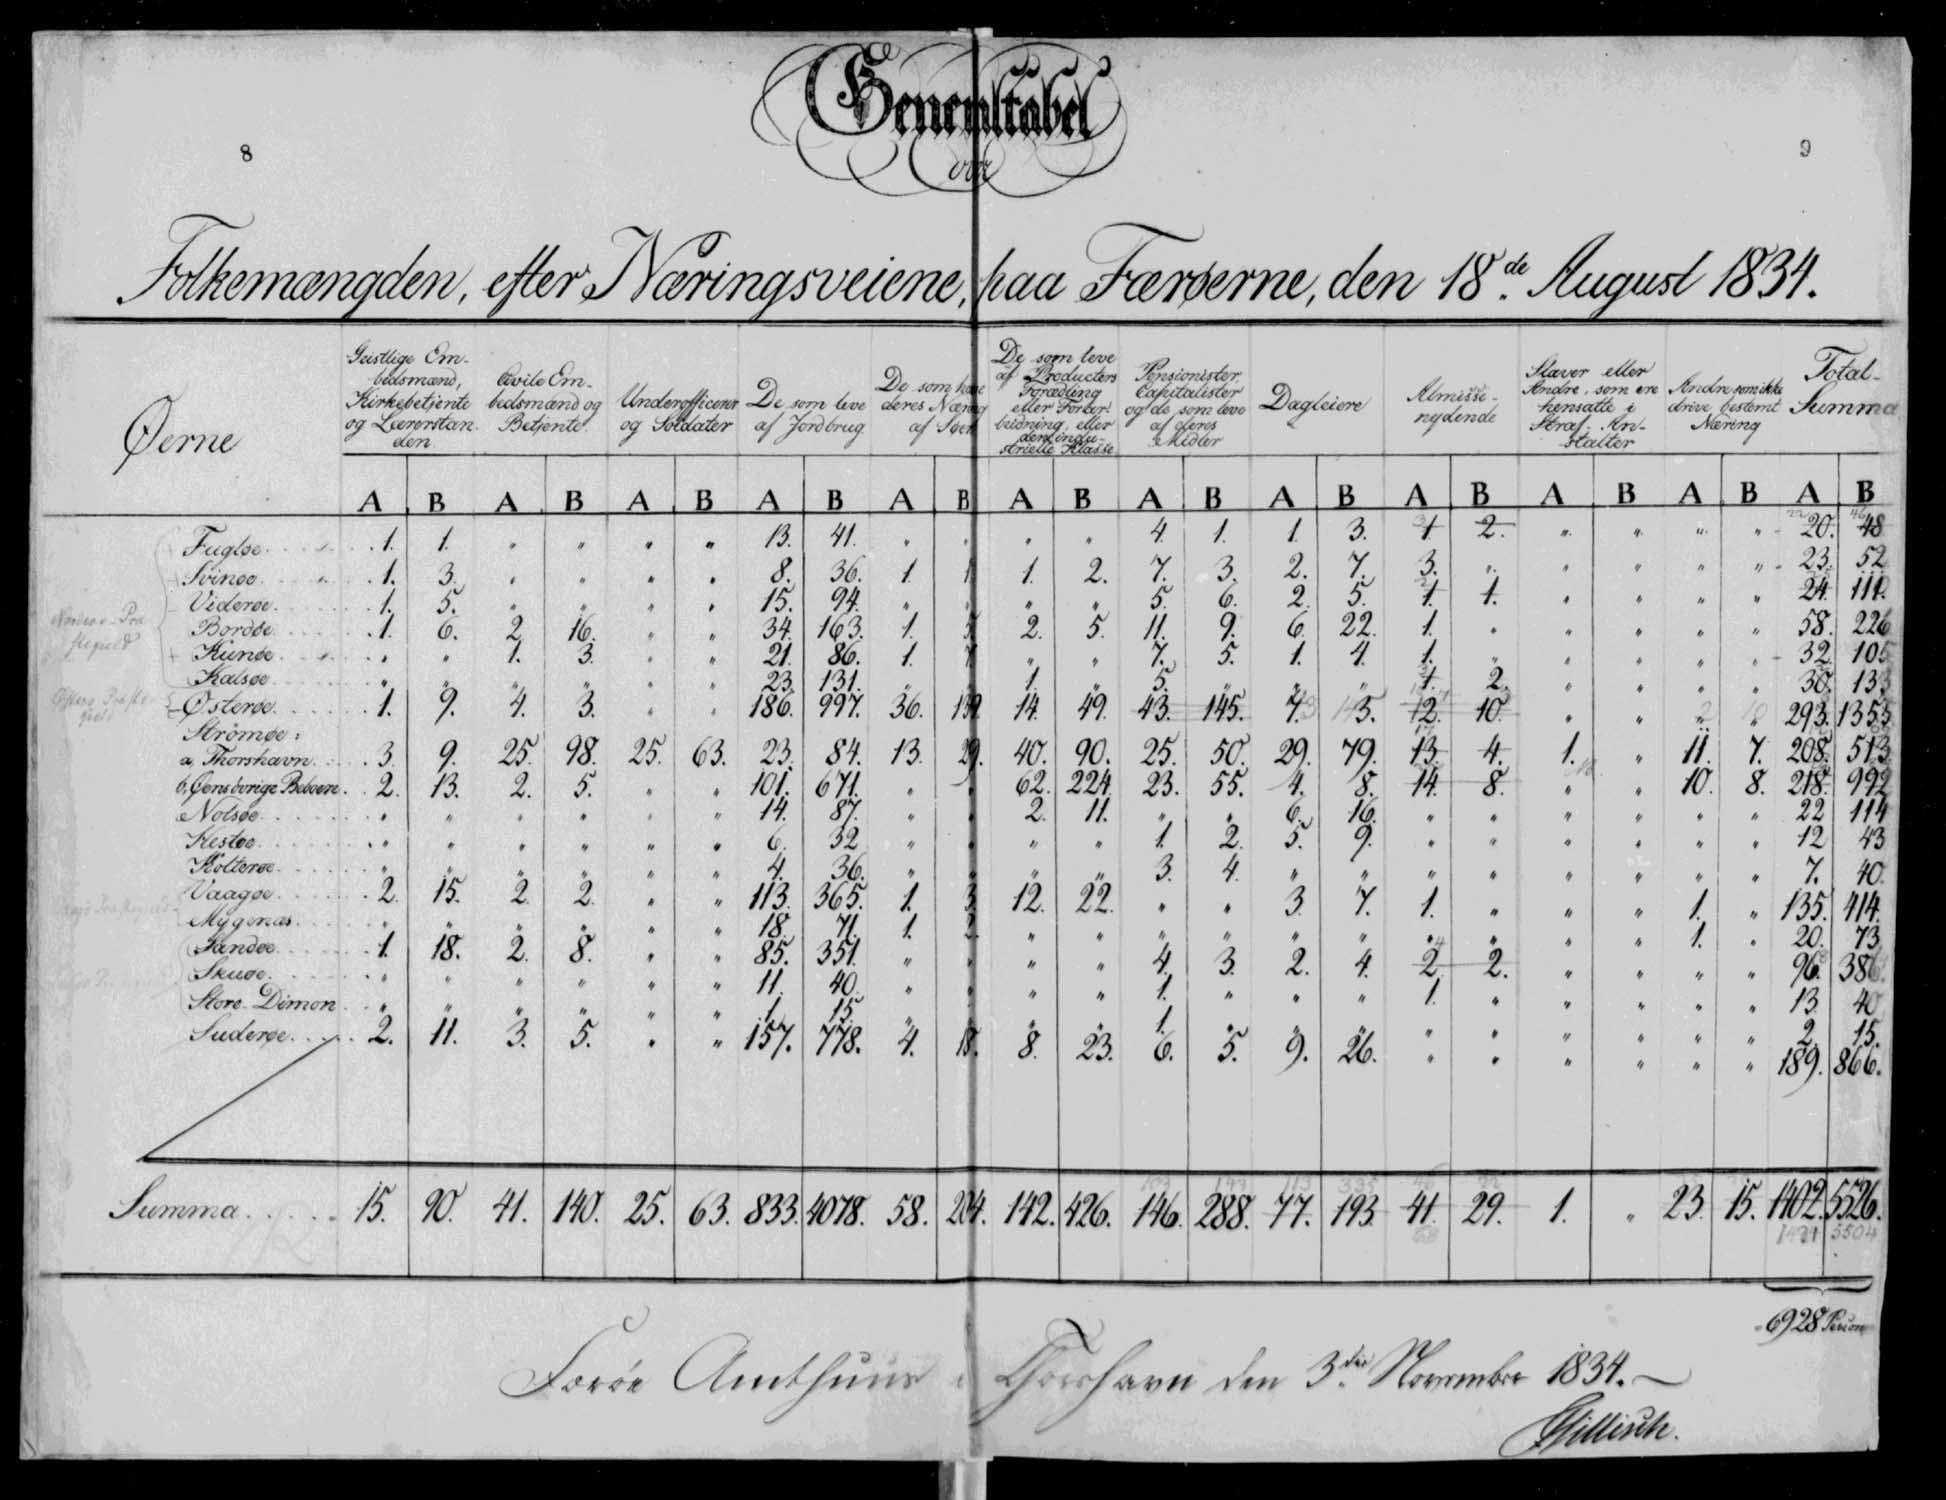 Generaltabel
8
9
over
Folkemængden, efter Næringsveiene, paa Færøerne, den 18de August 1834.
Øerne | Geistlige Embedsmænd, Kirkebetjente og Lærerstanden | Civile Embedsmænd og Betjente | Underofficerer og Soldater | De som leve af Jordbrug | De som have deres Næring af Søen | De som leve af Producters Forædling eller Forarbeidning, eller den industrielle Klasse | Pensionister, Capitalister og de som leve af deres Midler | Dagleiere | Almisse-nydende | Slaver eller Andre, som ere hensatte i Straf-Anstalter | Andre som ikke drive bestemt Næring | Total-Summa
A B A B A B A B A B A B A B A B A B A B A B A B
Fugløe. 1. 1. " " " " 13. 41. " " " " 4. 1. 1. 3. 1 2. " " " " 20. 48
Svinøe. 1. 3. " " " " 8. 36. 1. 1 1. 2. 7. 3. 2. 7. 3. " " " " " 23. 52
Viderøe. 1. 5. " " " " 15. 94. " " " " 5. 6. 2. 5. 1. 1. " " " " 24. 111.
Bordøe. 1. 6. 2. 16. " " 34. 163. 1. 5. 2. 5. 11. 9. 6. 22. 1. " " " " " 58. 226
Kunøe. " " 1. 3. " " 21. 86. 1. 7 " " 7. 5. 1. 4. 1. " " " " " 32. 105
Kalsøe. " " " " " " 23. 131. " " 1. " 5. " " " 1. 2. " " " " 30. 133
Østerøe. 1. 9. 4. 3. " " 186. 997. 36. 139. 14. 49. 43. 145. 7. 3. 12. 10. " " " " 293. 1355
Strömøe:
a, Thorshavn. 3. 9. 25. 98. 25. 63. 23. 84. 13. 29. 40. 90. 25. 50. 29. 79. 13. 4. 1. " 11. 7. 208. 513
b, Øens övrige Beboere. 2. 13. 2. 5. " " 101. 671. " " 62. 224. 23. 55. 4. 8. 14. 8. " " 10. 8. 218. 992
Nolsøe. " " " " " " 14. 87. " " 2. 11. " " 6. 16. " " " " " " 22 114
Hestøe. " " " " " " 6. 32 " " " " 1. 2. 5. 9. " " " " " " 12 43
Kolterøe. " " " " " " 4. 36. " " " " 3. 4. " " " " " " " " 7. 40.
Vaagøe. 2. 15. 2. 2. " " 113. 365. 1. 3. 12. 22. " " 3. 7. 1. " " " 1. " 135. 414.
Mygenæs. " " " " " " 18. 71. 1. 2. " " " " " " " " " " 1. " 20. 73
Sandøe. 1. 18. 2. 8. " " 85. 351. " " " " 4. 3. 2. 4. 2. 2. " " " " 96. 386.
Skuøe. " " " " " " 11. 40. " " " " 1. " " " 1. " " " " " 13. 40
Store Dimon " " " " " " 1. 15. " " " " 1. " " " " " " " " " 2. 15.
Suderøe. 2. 11. 3. 5. " " 157. 778. 4. 18. 8. 23. 6. 5. 9. 26. " " " " " " 189. 866.
Summa. 15. 90. 41. 140. 25. 63. 833. 4078. 58. 204. 142. 426. 146. 288. 77. 193. 41. 29. 1. " 23. 15. 1402. 5526.
5504
6928 Person
Færöe Amthuus i Thorshavn den 3die November 1834.
Tillisch.